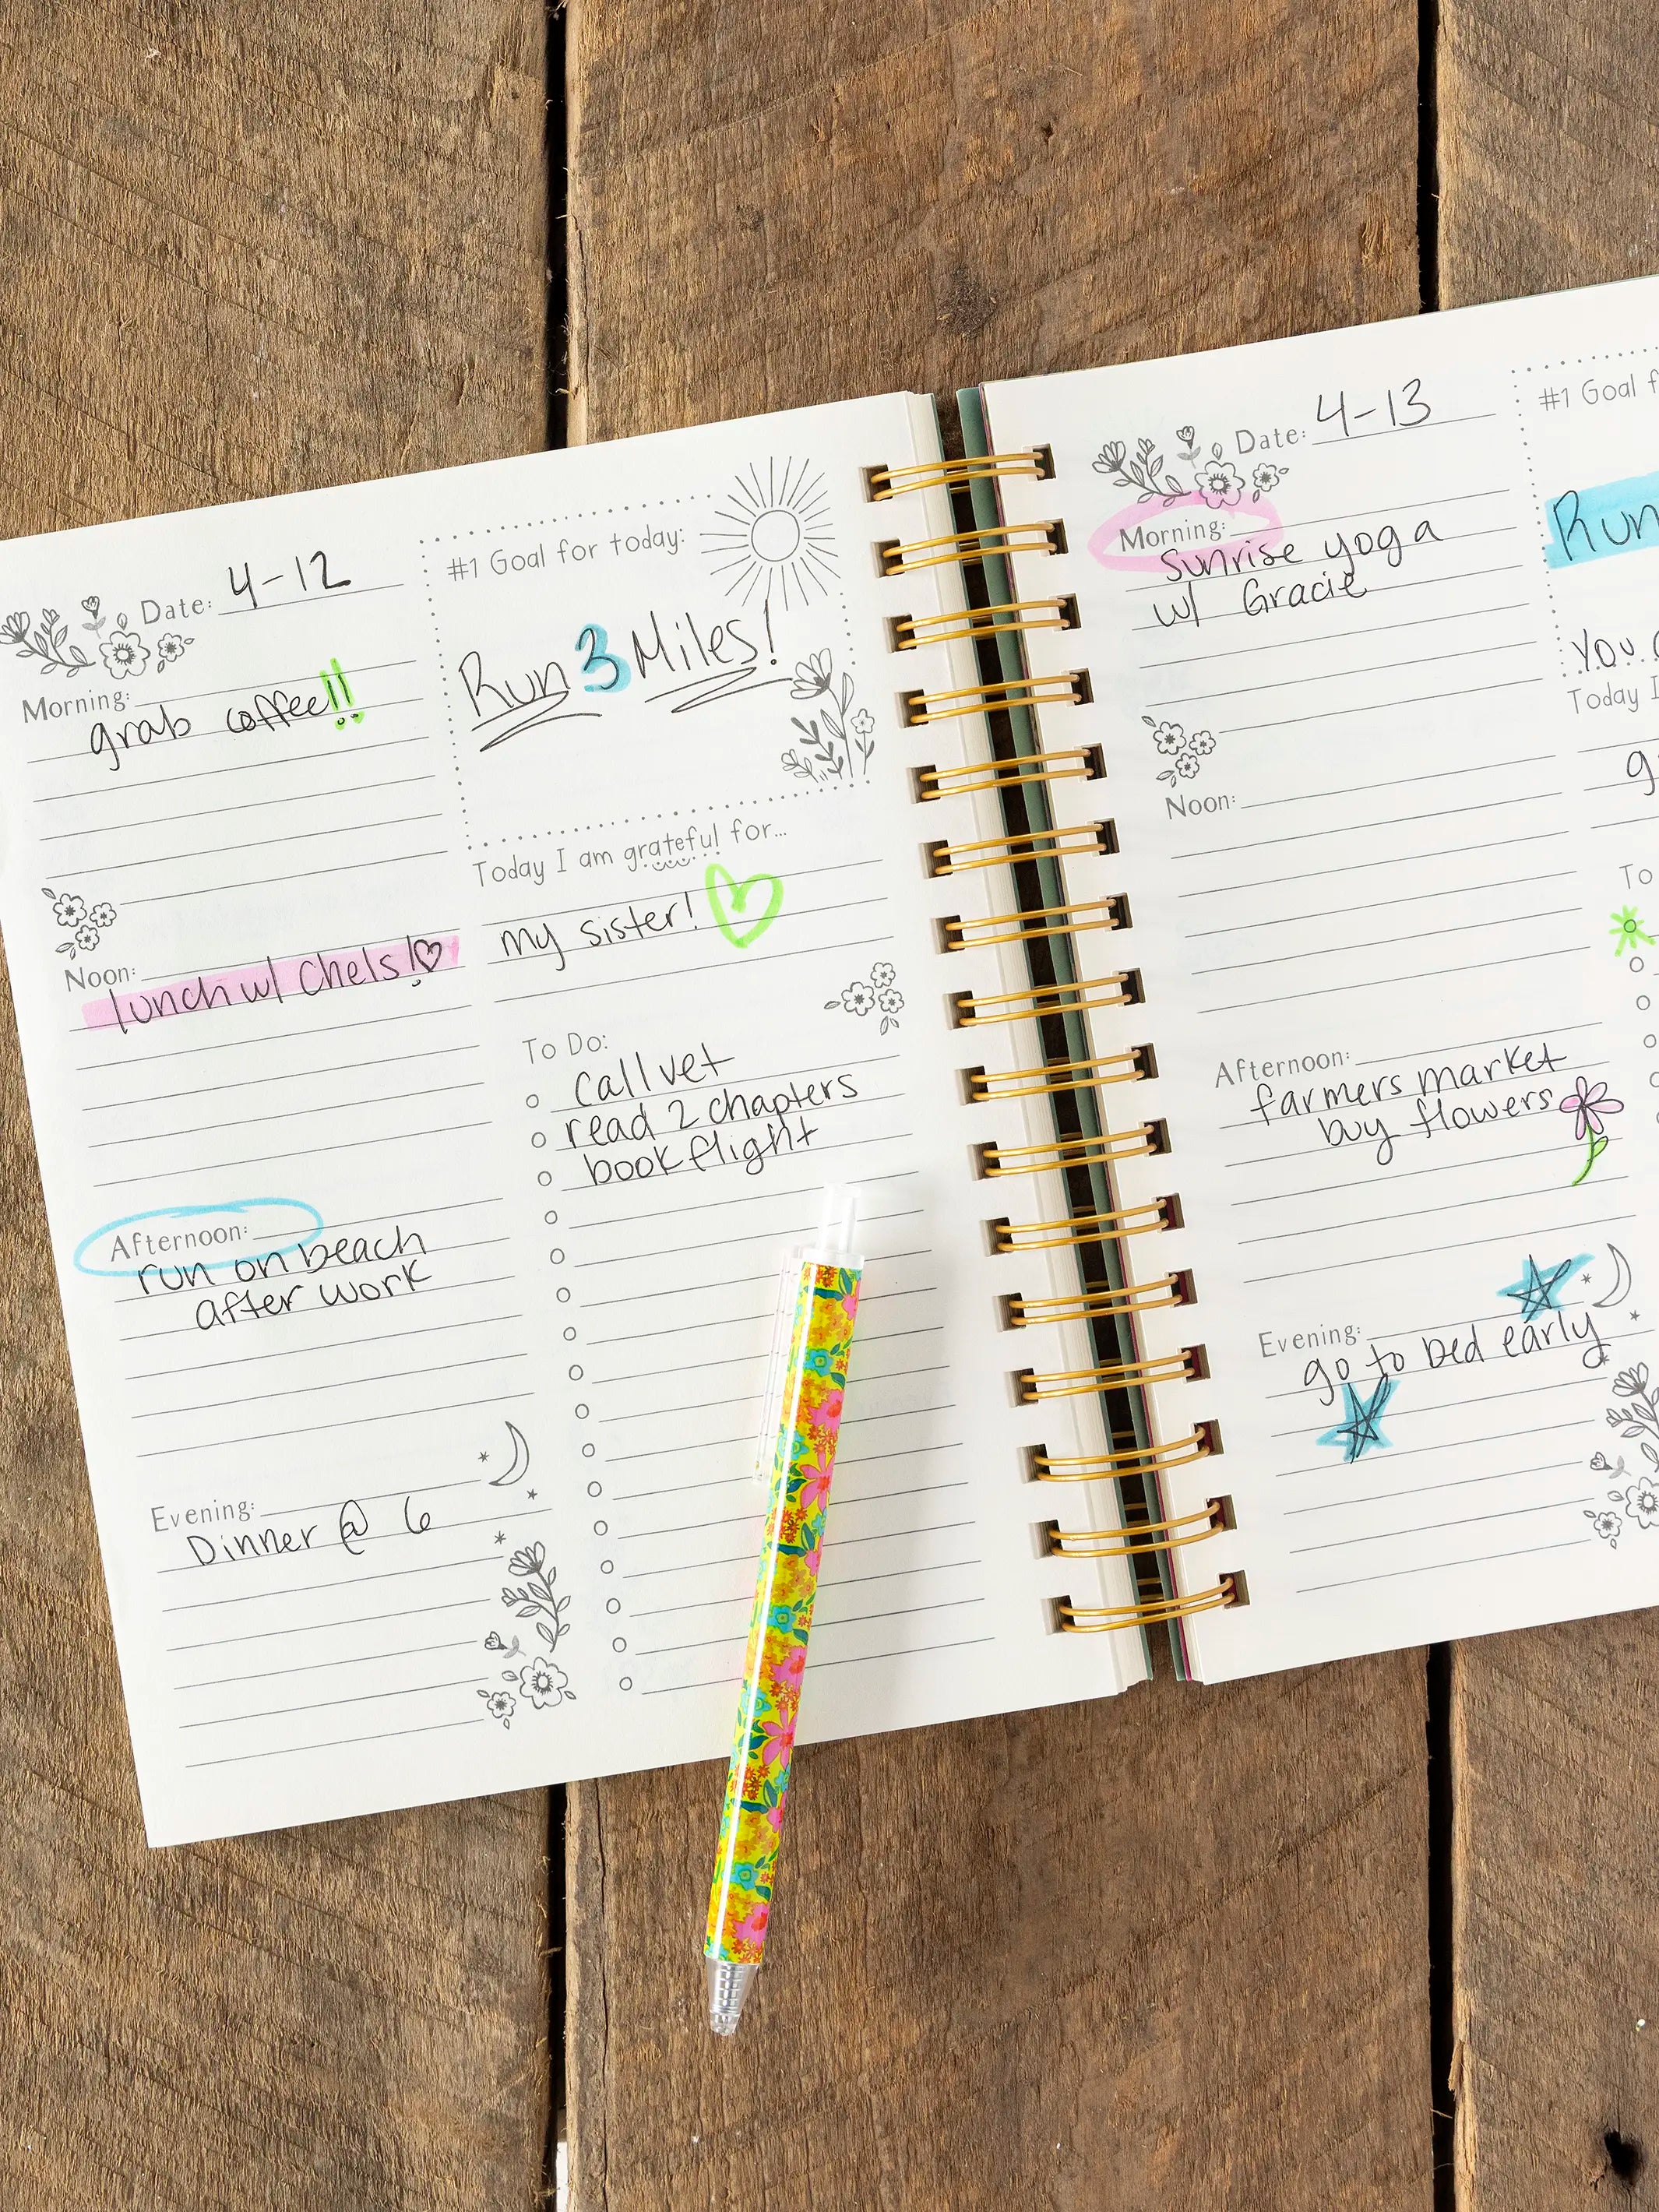 Date: 4-12
Morning:
grab coffee!!
Noon:
lunch w/ Chels!
Afternoon:
run on beach
after work
Evening:
Dinner @ 6
#1 Goal for today:
Run 3 Miles!
Today I am grateful for...
my sister!
To Do:
call vet
read 2 chapters
book flight
Date: 4-13
Morning:
sunrise yoga
w/ Gracie
Noon:
Afternoon:
farmers market
buy flowers
Evening:
go to bed early
#1 Goal
Run
You
Today I
To